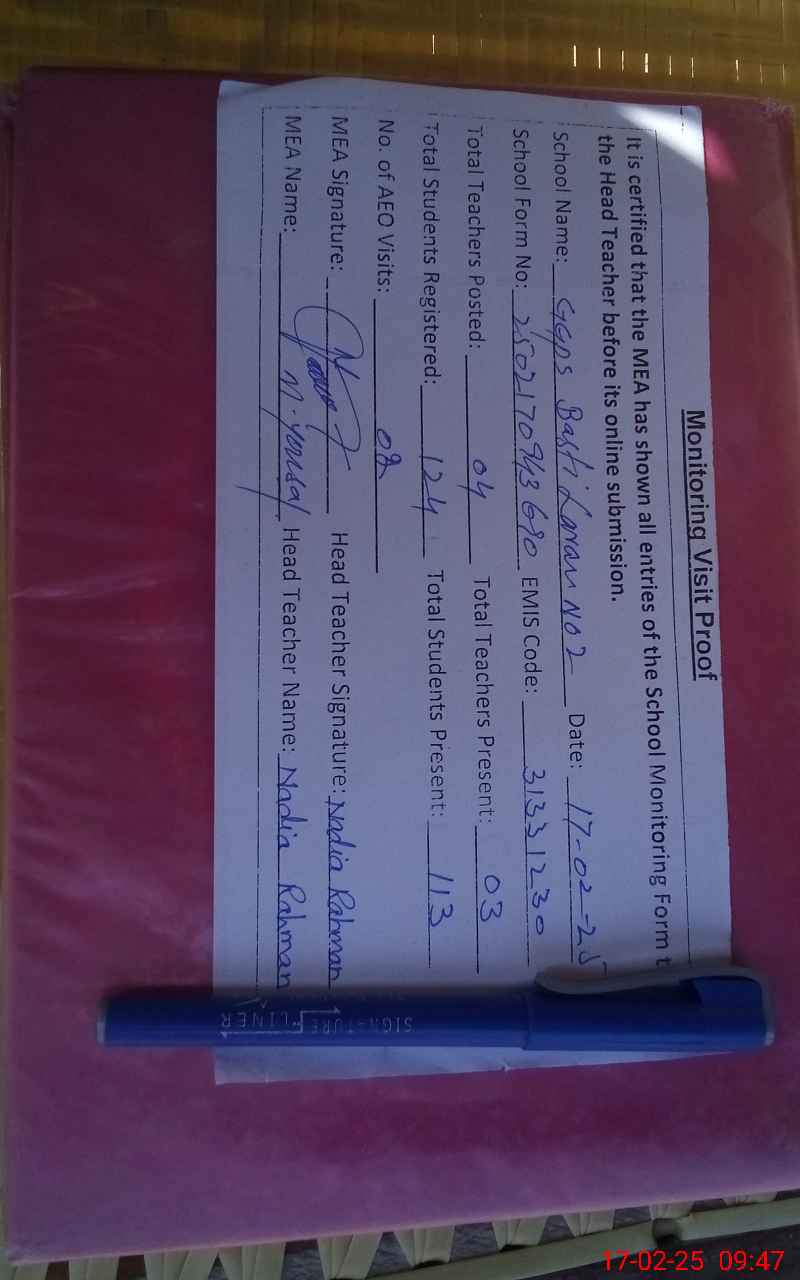 Monitoring Visit Proof
It is certified that the MEA has shown all entries of the School Monitoring Form t
the Head Teacher before its online submission.
School Name: GGPS Basti Laran NO 2 Date: 17-02-25
School Form No: 2502170943690 EMIS Code: 31331230
Total Teachers Posted: 04 Total Teachers Present: 03
Total Students Registered: 124 Total Students Present: 113
No. of AEO Visits: 02
MEA Signature: Head Teacher Signature: Nadia Rahman
MEA Name: M. Yousaf Head Teacher Name: Nadia Rahman
SIGNATURE LINER
17-02-25 09:47